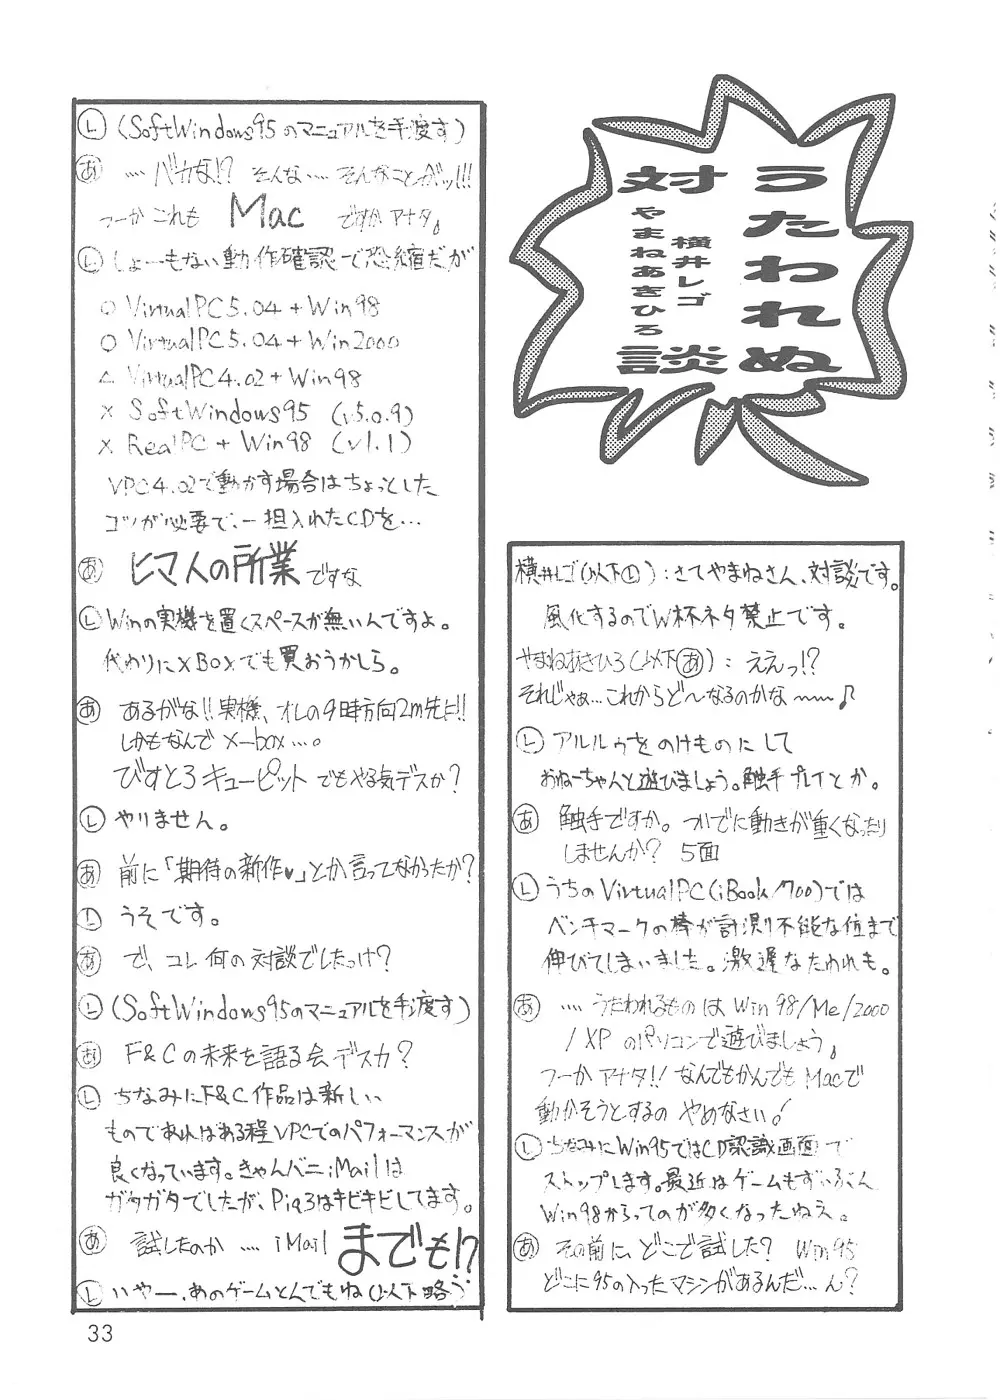 うたわれぬ
対談
横井レゴ
やまねあきひろ
横井レゴ(以下Ⓛ):さてやまねさん、対談です。
風化するのでW杯ネタ禁止です。
やまねあきひろ(以下あ):ええっ!?
それじゃぁ…これからど〜なるのかな〜〜♪
Ⓛ アルルゥをのけものにして
おねーちゃんと遊びましょう。触手プレイとか。
あ 触手ですか。ついでに動きが重くなったり
しませんか? 5面
Ⓛ うちのVirtualPC(iBook/700)では
ベンチマークの棒が計測不能な位まで
伸びてしまいました。激遅なたわれも。
あ ….うたわれるものは Win 98/Me/2000
/XP のパソコンで遊びましょう。
つーか アナタ!! なんでもかんでも Macで
動かそうとするの やめなさい!
Ⓛ ちなみにWin95ではCD認識画面で
ストップします。最近はゲームもずいぶん
Win98からってのが多くなったねえ。
あ その前に、どこで試した? Win95
どこに95の入ったマシンがあるんだ…ん?
Ⓛ (SoftWindows95のマニュアルを手渡す)
あ ….バカな!? そんな….そんなことがッ!!!
つーか これも Mac ですか アナタ。
Ⓛ しょーもない動作確認で恐縮だが
○ VirtualPC5.04+Win98
○ VirtualPC5.04+Win2000
△ VirtualPC4.02+Win98
× SoftWindows95 (v5.0.9)
× RealPC+Win98 (v1.1)
VPC4.02で動かす場合はちょっとした
コツが必要で、一担入れたCDを…
あ ヒマ人の所業ですな
Ⓛ Winの実機を置くスペースが無いんですよ。
代わりにxBoxでも買おうかしら。
あ あるがな!!実機、オレの9時方向2m先に!!
しかもなんで X-box…。
びすとろキューピットでもやる気デスか?
Ⓛ やりません。
あ 前に「期待の新作♥」とか言ってなかったか?
Ⓛ うそです。
あ で、コレ何の対談でしたっけ?
Ⓛ (SoftWindows95のマニュアルを手渡す)
あ F&Cの未来を語る会デスカ?
Ⓛ ちなみにF&C作品は新しい
ものであればある程VPCでのパフォーマンスが
良くなっています。きゃんバニiMailは
ガタガタでしたが、Pia3はキビキビしてます。
あ 試したのか….iMailまでも!?
Ⓛ いやー、あのゲームとんでもね(以下略う
33